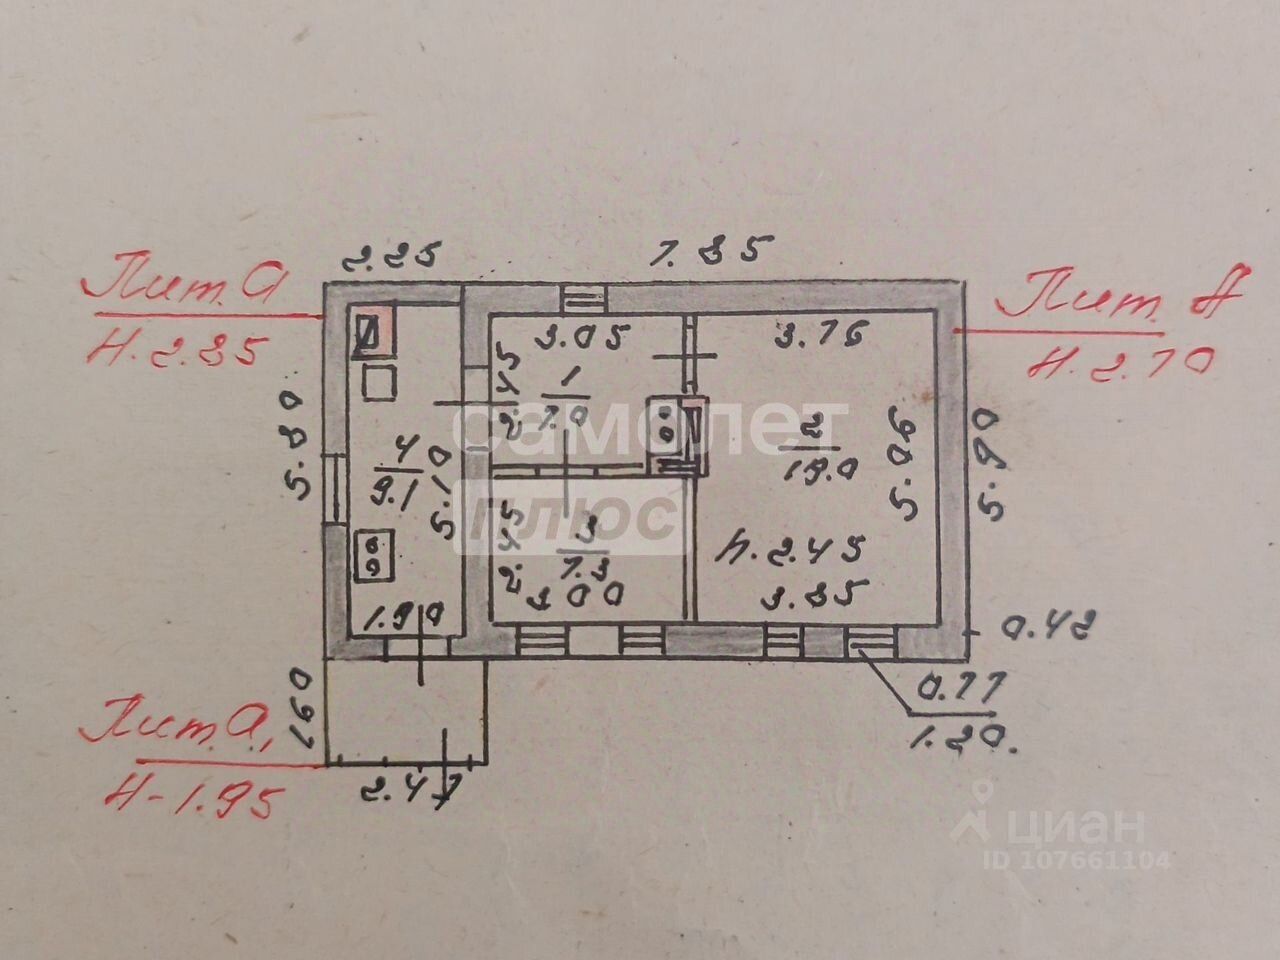 2.25
7.85
Лит. а
Н. 2.35
Лит. А
Н. 2.70
3.05
3.76
5.80
2.45
1
7.0
самолет
плюс
2
19.0
5.06
5.90
4
9.1
5.10
2.45
3
7.3
3.00
Н. 2.45
3.85
1.90
0.42
0.77
1.20.
1.60
Лит. а,
Н-1.95
2.47
циан
ID 107661104